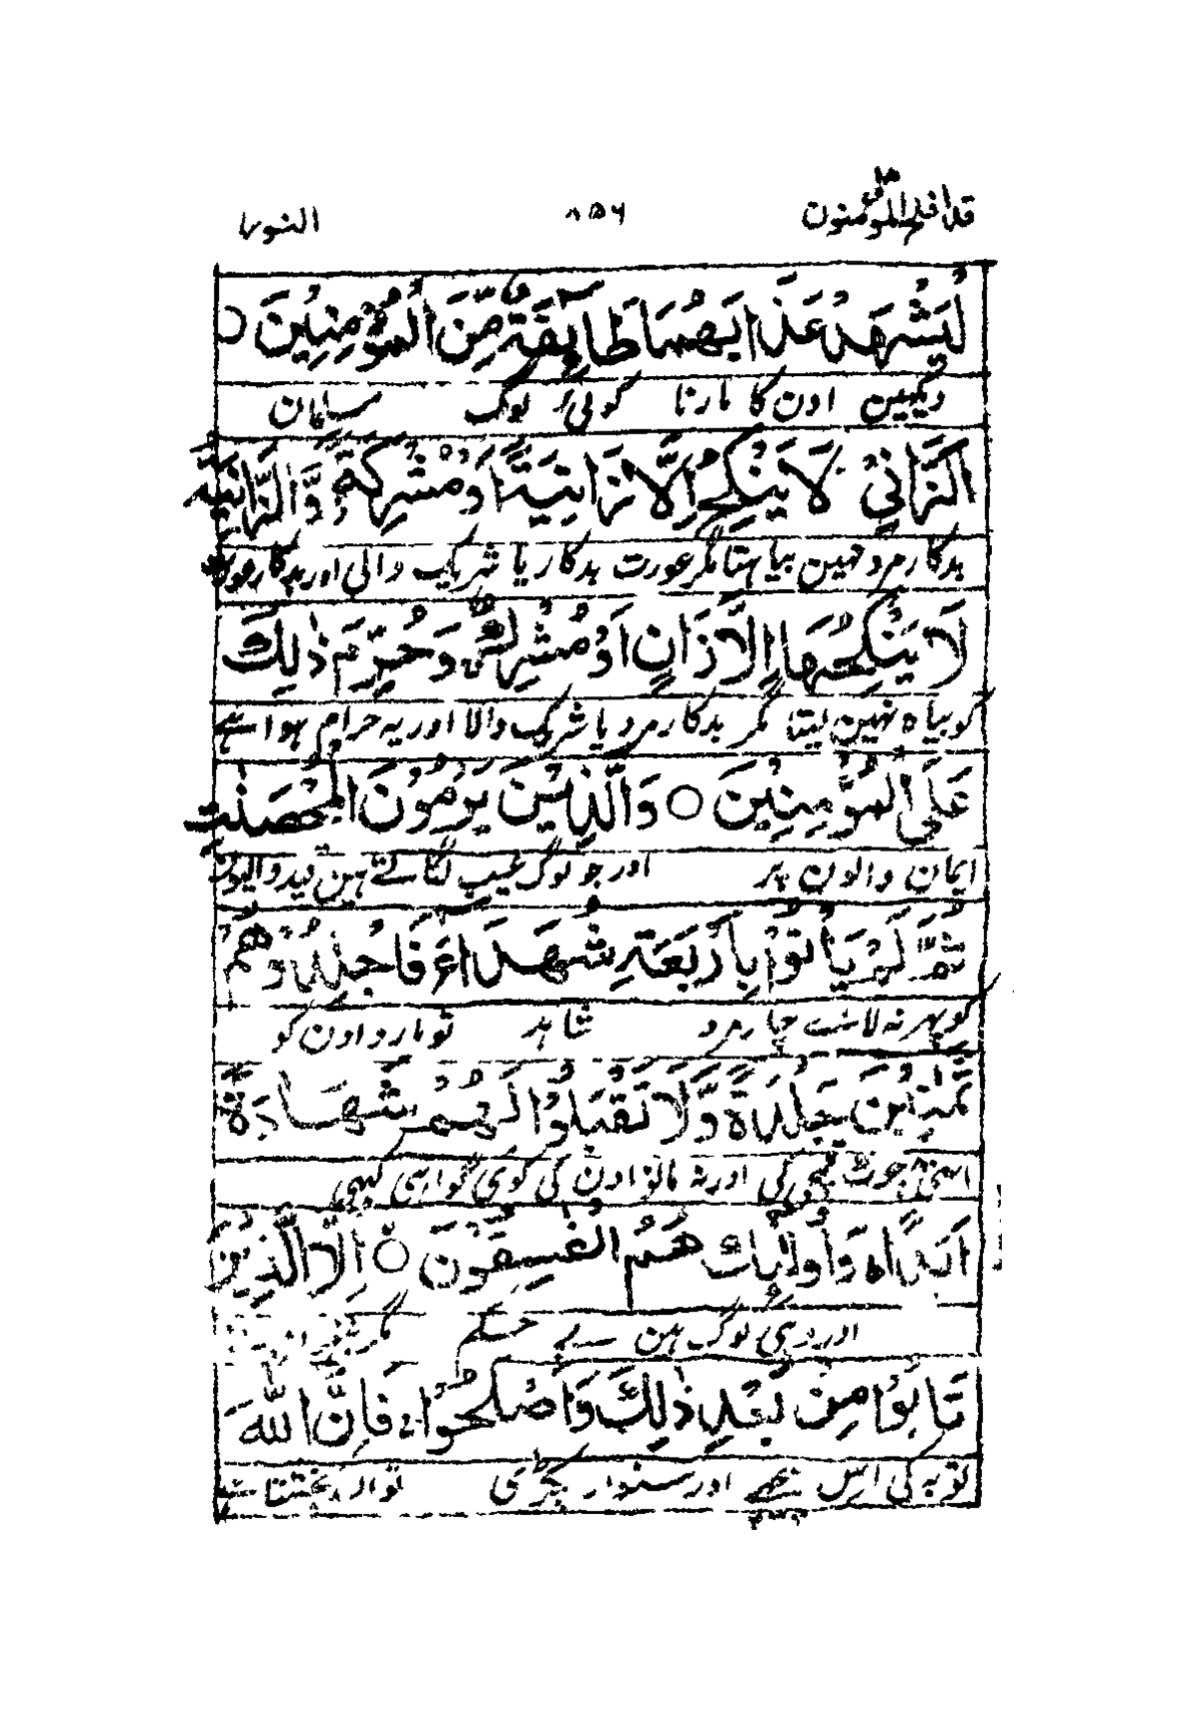 قد افلح المؤمنون ۱۸ ۸۵۶ النور
لْيَشْهَدْ عَذَابَهُمَا طَآئِفَةٌ مِّنَ الْمُؤْمِنِيْنَ ○
دیکھین اون کا مارنا کوئی لوگ مسلمان
اَلزَّانِىْ لَا يَنْكِحُ اِلَّا زَانِيَةً اَوْ مُشْرِكَةً وَّالزَّانِيَةُ
بدکار مرد نہین بیاہتا مگر عورت بدکار یا شریک والی اور بدکار عورت
لَا يَنْكِحُهَا اِلَّا زَانٍ اَوْ مُشْرِكٌ وَحُرِّمَ ذٰلِكَ
کو بیاہ نہین لیتا مگر بدکار مرد یا شریک والا اور یہ حرام ہوا ہے
عَلَى الْمُؤْمِنِيْنَ ○ وَالَّذِيْنَ يَرْمُوْنَ الْمُحْصَنٰتِ
ایمان والون پر اور جو لوگ عیب لگاتے ہین قید والیون
ثُمَّ لَمْ يَاْتُوْا بِاَرْبَعَةِ شُهَدَآءَ فَاجْلِدُوْهُمْ
کو پھر نہ لائے چار مرد شاہد تو مارو اون کو
ثَمٰنِيْنَ جَلْدَةً وَّلَا تَقْبَلُوْا لَهُمْ شَهَادَةً
اسّی چوٹ قمچی کی اور نہ مانو اون کی کوئی گواہی کبھی
اَبَدًا ۚ وَاُولٰٓئِكَ هُمُ الْفٰسِقُوْنَ ○ اِلَّا الَّذِيْنَ
اور وہی لوگ ہین بے حکم مگر
تَابُوْا مِنْ بَعْدِ ذٰلِكَ وَاَصْلَحُوْا ۚ فَاِنَّ اللّٰهَ
توبہ کی اس پیچھے اور سنوار پکڑی تو اللہ بخشتا ہے